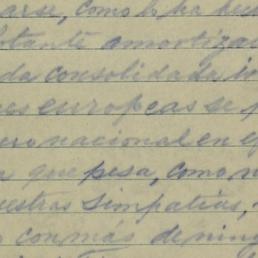 arse, como lo ha
amortiza
da consolidada
es europeas se
ero nacional en
que pesa, como
uestras simpatías,
o con más de nin